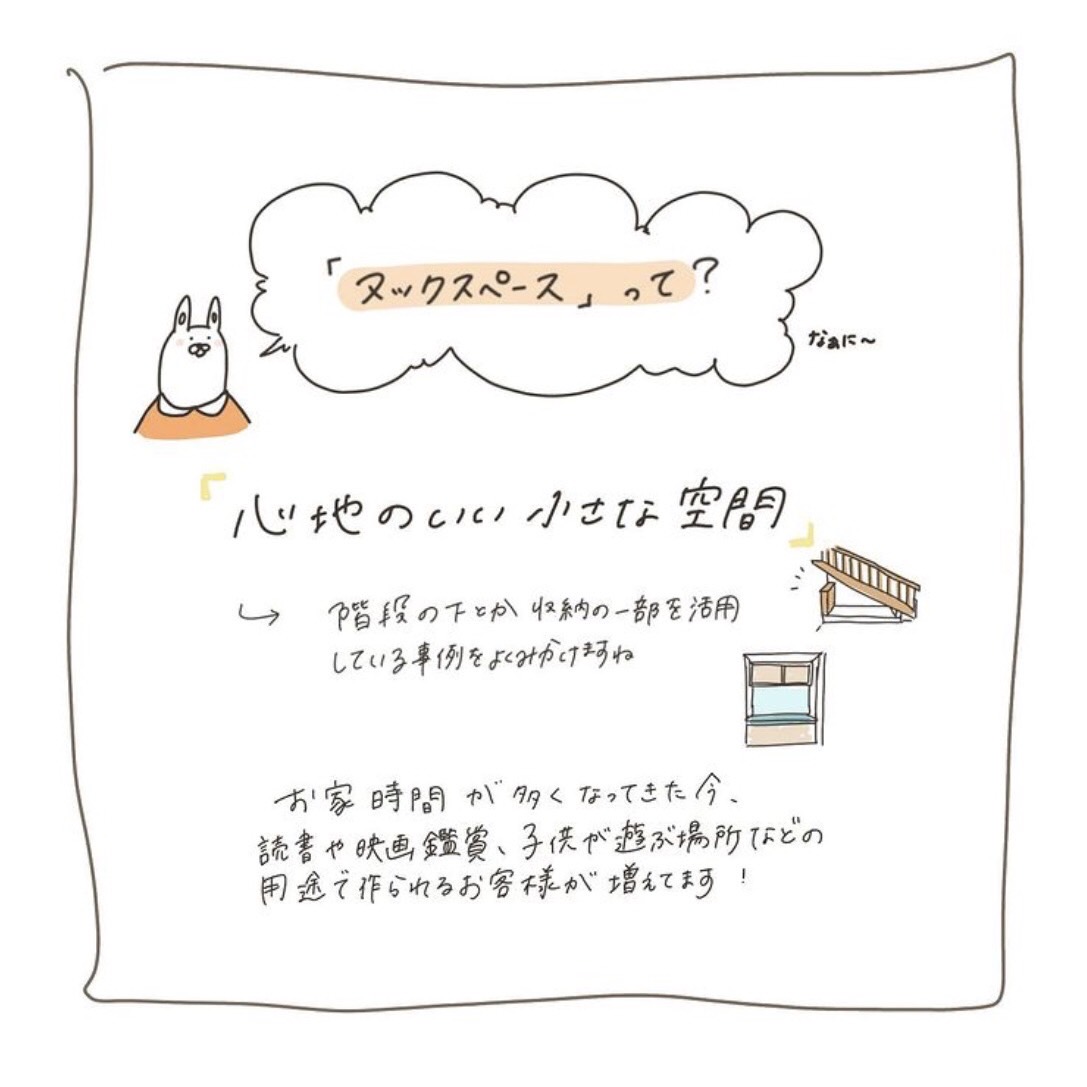 「ヌックスペース」って?
なぁに〜
『心地のいい小さな空間』
階段の下とか収納の一部を活用
している事例をよくみかけますね
お家時間が多くなってきた今、
読書や映画鑑賞、子供が遊ぶ場所などの
用途で作られるお客様が増えてます!